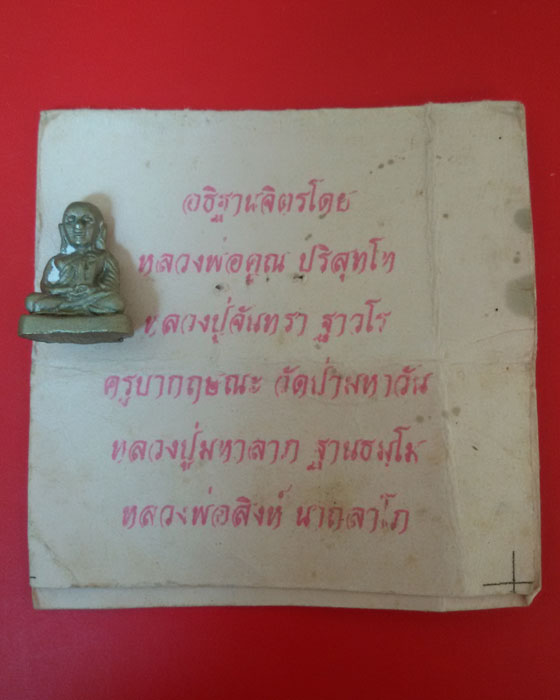 อธิฐานจิตรโดย
หลวงพ่อคูณ ปริสุทโท
หลวงปู่จันทรา ฐาวโร
ครูบากฤษณะ วัดป่ามหาวัน
หลวงปู่มหาลาภ ฐานธมฺโม
หลวงพ่อสิงห์ นาถลาโภ